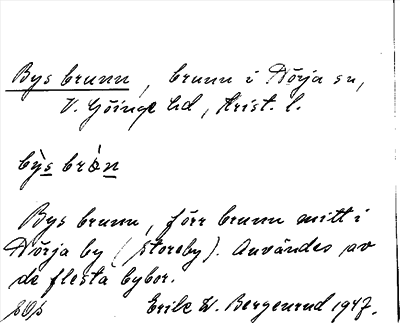 Bys brunn, brunn i Nörja sn,
V. Göinge hd, Krist. l.
bỳs bròn
Bys brunn, förr brunn mitt i
Nörja by (storeby). Användes av
de flesta bybor.
Erik W. Bergenrud 1947.